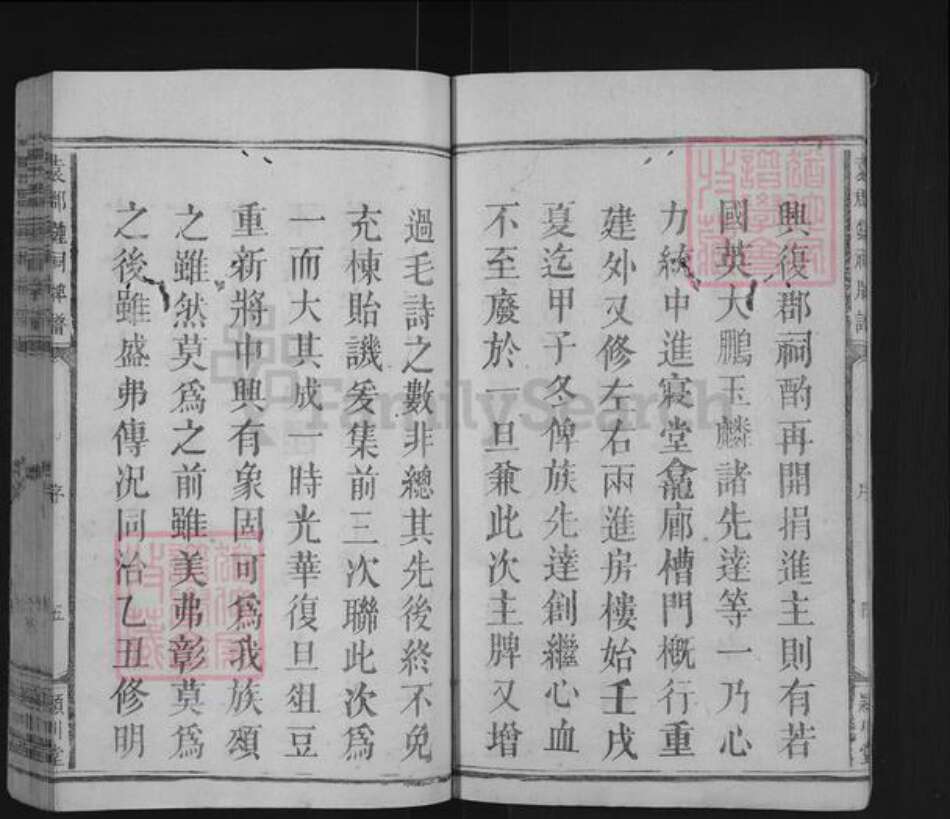 興復郡祠酌再開捐進主則有若
國英大鵬玉麟諸先達等一乃心
力統中進寢堂龕廊槽門概行重
建外又修左右兩進房樓始壬戌
夏迄甲子冬俾族先達創繼心血
不至廢於一旦兼此次主牌又增
過毛詩之數非總其先後終不免
充棟貽譏爰集前三次聯此次為
一而大其成一時光華復旦俎豆
重新將中興有象固可為我族頌
之雖然莫為之前雖美弗彰莫為
之後雖盛弗傳況同治乙丑修明
袁郡 祠 譜
序
五
潁川堂
FamilySearch